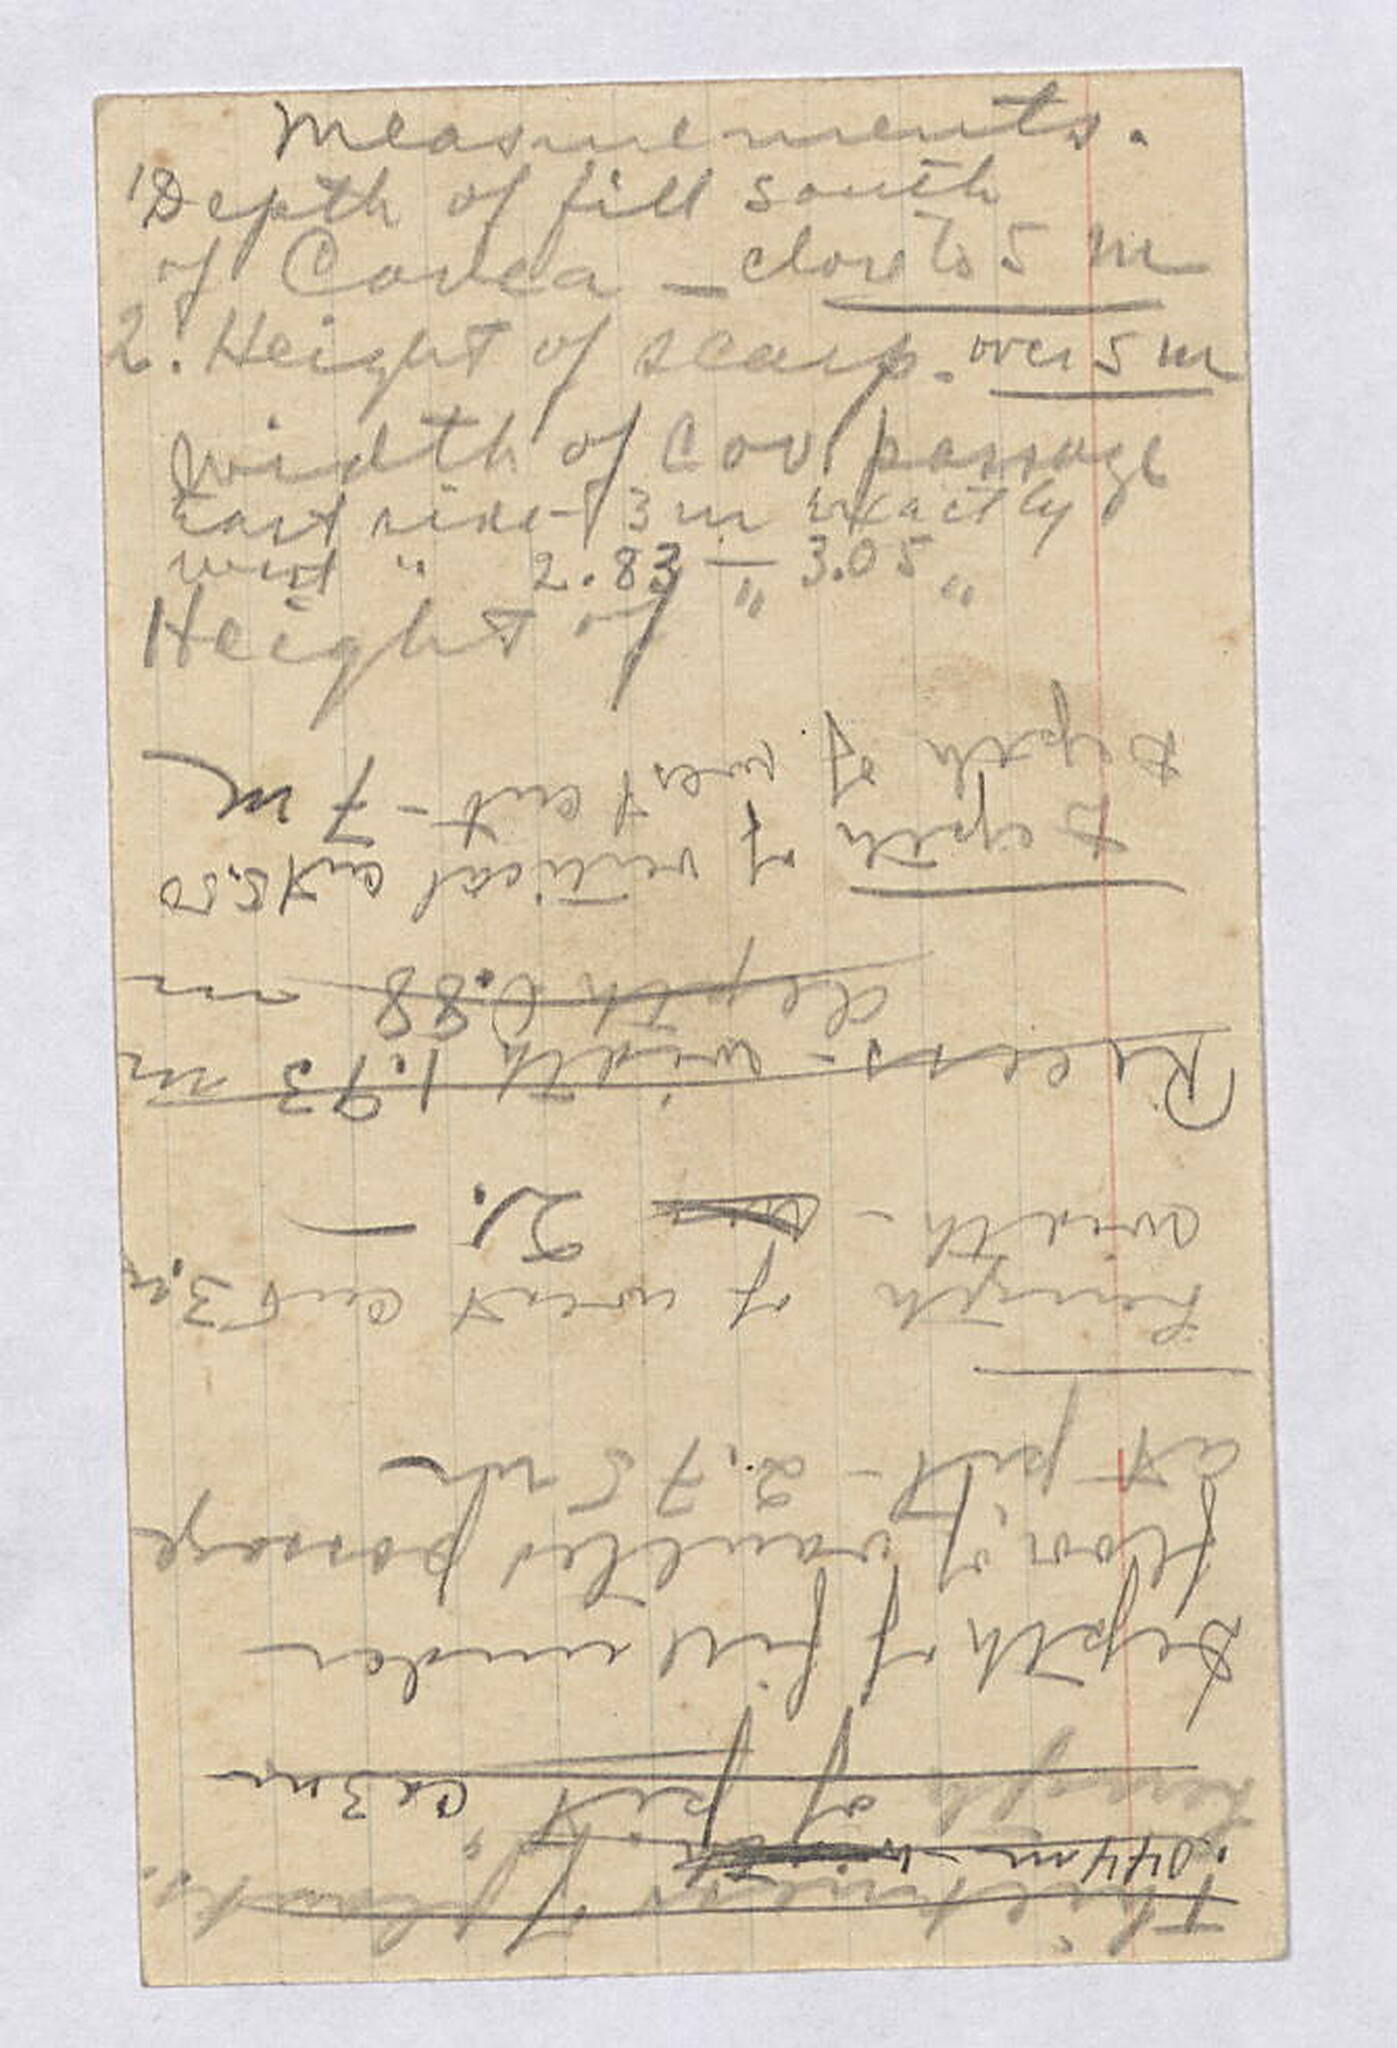 Measurements.
1 Depth of fill south
of Cavea — close to 5 m
2. Height of scarp - over 5 m
width of cov. passage
East side - 3 m exactly
west " 2.83 — 3.05 "
Height of "
Thickness of planks.
.044 m - width
Length of pit " ca 3 m
Depth of fill under
floor of vaulted passage
at pit - 2.75 m
Length of west cut 3. m
width - 2. —
Recess - width 1.93 m
depth 0.88 m
Depth of vertical cut 5.50
Depth of west cut - 7 m